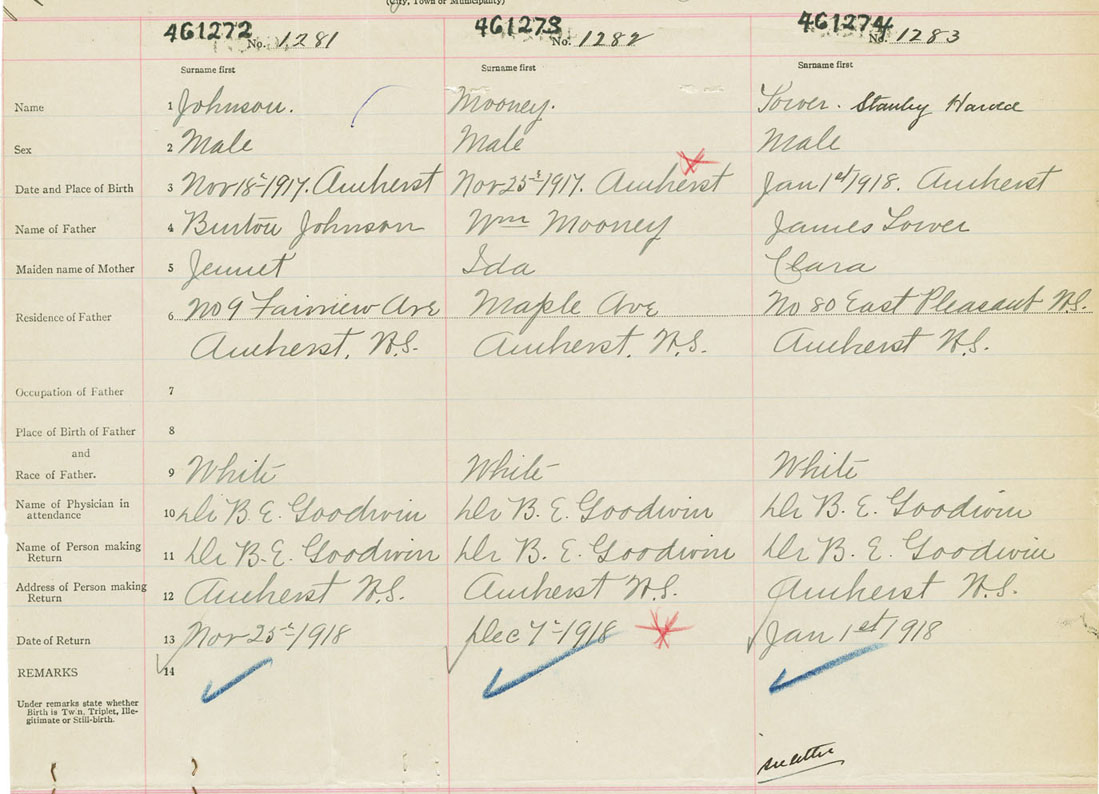 (City, Town or Municipality)
461272 461273 461274
No. 1281 No. 1282 No. 1283
Surname first Surname first Surname first
Name 1 Johnson. Mooney. Tower. Stanley Harold
Sex 2 Male Male Male
Date and Place of Birth 3 Nov 18 1917. Amherst Nov 25 1917. Amherst Jan 1st 1918. Amherst
Name of Father 4 Burton Johnson Wm Mooney James Tower
Maiden name of Mother 5 Jennet Ida Clara
Residence of Father 6 No 9 Fairview Ave Maple Ave No 80 East Pleasant N.S.
Amherst, N.S. Amherst, N.S. Amherst N.S.
Occupation of Father 7
Place of Birth of Father 8
and
Race of Father. 9 White White White
Name of Physician in attendance 10 Dr B. E. Goodwin Dr B. E. Goodwin Dr B. E. Goodwin
Name of Person making Return 11 Dr B. E. Goodwin Dr B. E. Goodwin Dr B. E. Goodwin
Address of Person making Return 12 Amherst N.S. Amherst N.S. Amherst N.S.
Date of Return 13 Nov 25 1918 Dec 7 1918 Jan 1st 1918
REMARKS 14
Under remarks state whether
Birth is Twin, Triplet, Ille-
gitimate or Still-birth.
see letter